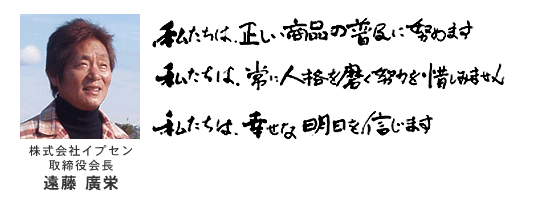 私たちは、正しい商品の普及に努めます
私たちは、常に人格を磨く努力を惜しみません
私たちは、幸せな明日を信じます
株式会社イプセン
取締役会長
遠藤 廣栄